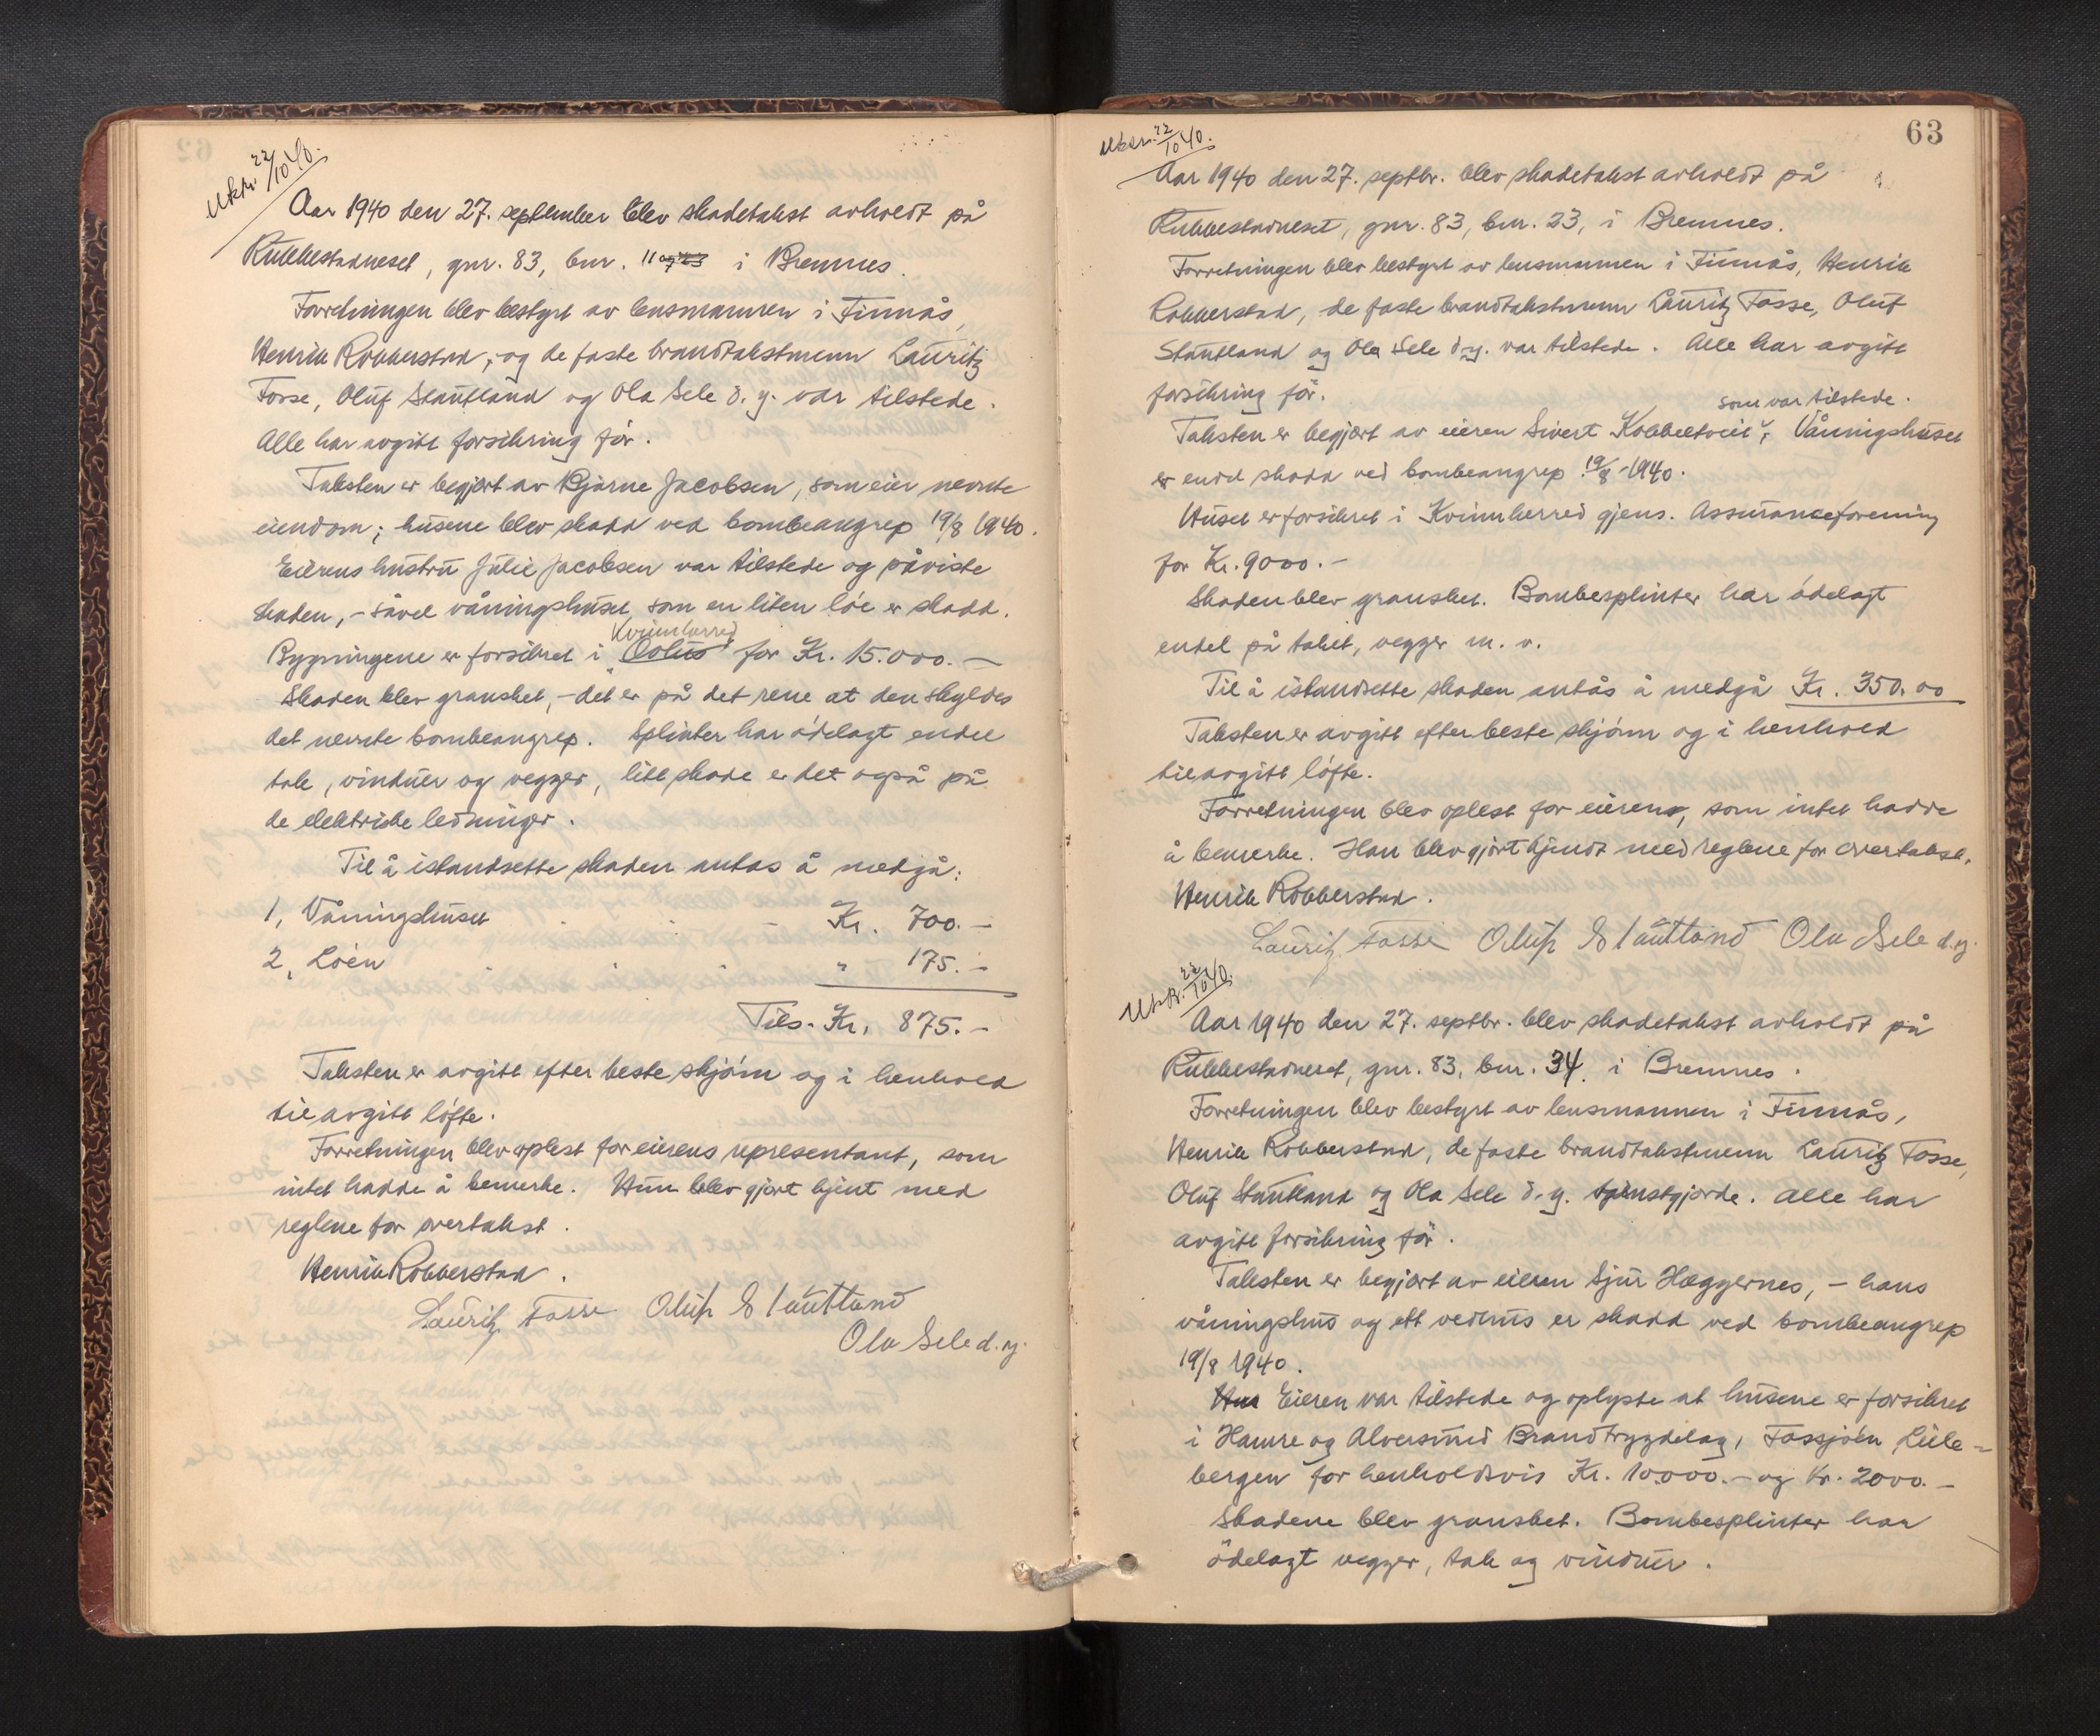 Utskr. 22/10 40.
Aar 1940 den 27. september blev skadetakst avholdt på
Rubbestadneset, gnr. 83, bnr. 11 og 23 i Bremnes.
Forretningen blev bestyrt av lensmannen i Finnås,
Henrik Robberstad, og de faste brandtakstmenn Lauritz
Fosse, Oluf Stautland og Ola Sele d. y. var tilstede.
Alle har avgitt forsikring før.
Taksten er begjært av Bjarne Jacobsen, som eier nevnte
eiendom; husene blev skadd ved bombeangrep 19/8 1940.
Eierens hustru Julie Jacobsen var tilstede og påviste
skaden, - såvel våningshuset som en liten løe er skadd.
Kvinnherred
Bygningene er forsikret i "Æolus" for Kr. 15.000.-
Skaden blev gransket, - det er på det rene at den skyldes
det nevnte bombeangrep. Splinter har ødelagt endel
tak, vinduer og vegger, litt skade er det også på
de elektriske ledninger.
Til å istandsette skaden antas å medgå:
1, Våningshuset - Kr. 700.-
2, Løen " 175.-
Tils. Kr. 875.-
Taksten er avgitt efter beste skjønn og i henhold
til avgitt løfte.
Forretningen blev oplest for eierens representant, som
intet hadde å bemerke. Hun blev gjort kjent med
reglene for overtakst.
Henrik Robberstad.
Lauritz Fosse Oluf Stautland
Ola Sele d. y.
63
Utskr. 22/10 40.
Aar 1940 den 27. septbr. blev skadetakst avholdt på
Rubbestadneset, gnr. 83, bnr. 23, i Bremnes.
Forretningen blev bestyrt av lensmannen i Finnås, Henrik
Robberstad, de faste brandtakstmenn Lauritz Fosse, Oluf
Stautland og Ola Sele d.y. var tilstede. Alle har avgitt
forsikring før.
som var tilstede.
Taksten er begjært av eieren Sivert Kobbeltveit, Våningshuset
er endel skadd ved bombeangrep 19/8-1940.
Huset er forsikret i Kvinnherred gjens. Assuranceforening
for Kr. 9000.-
Skaden blev gransket. Bombesplinter har ødelagt
endel på taket, vegger m. v.
Til å istandsette skaden antås å medgå Kr. 350.00
Taksten er avgitt efter beste skjønn og i henhold
til avgitt løfte.
Forretningen blev oplest for eieren, som intet hadde
å bemerke. Han blev gjort kjendt med reglene for overtakst.
Henrik Robberstad.
Lauritz Fosse Oluf Stautland Ola Sele d.y.
Utskr. 22/10 40.
Aar 1940 den 27. septbr. blev skadetakst avholdt på
Rubbestadneset, gnr. 83, bnr. 34. i Bremnes.
Forretningen blev bestyrt av lensmannen i Finnås,
Henrik Robberstad, de faste brandtakstmenn Lauritz Fosse,
Oluf Stautland og Ola Sele d.y. tjenstgjorde. Alle har
avgitt forsikring før.
Taksten er begjært av eieren Sjur Hæggernes, - hans
våningshus og ett vedhus er skadd ved bombeangrep
19/8 1940.
Eieren var tilstede og oplyste at husene er forsikret
i Hamre og Alversund Brandtrygdelag, Fossjøen, Lille-
bergen for henholdsvis Kr. 10.000.- og Kr. 2000.-
Skadene blev gransket. Bombesplinter har
ødelagt vegger, tak og vinduer.